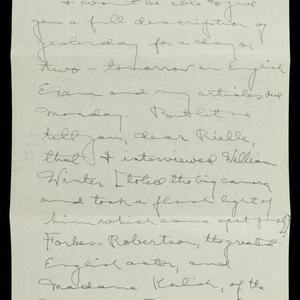 I won't be able to give
you a full description of
yesterday for a day or
two - tomorrow an English
Exam and my articles due
Monday. But let me
tell you, dear Rielle,
that I interviewed William
Winter I toted the big camera
and took a flash light of
him which came out finely,
Forbes-Robertson, the great
English actor, and
Madame Kalish, of the